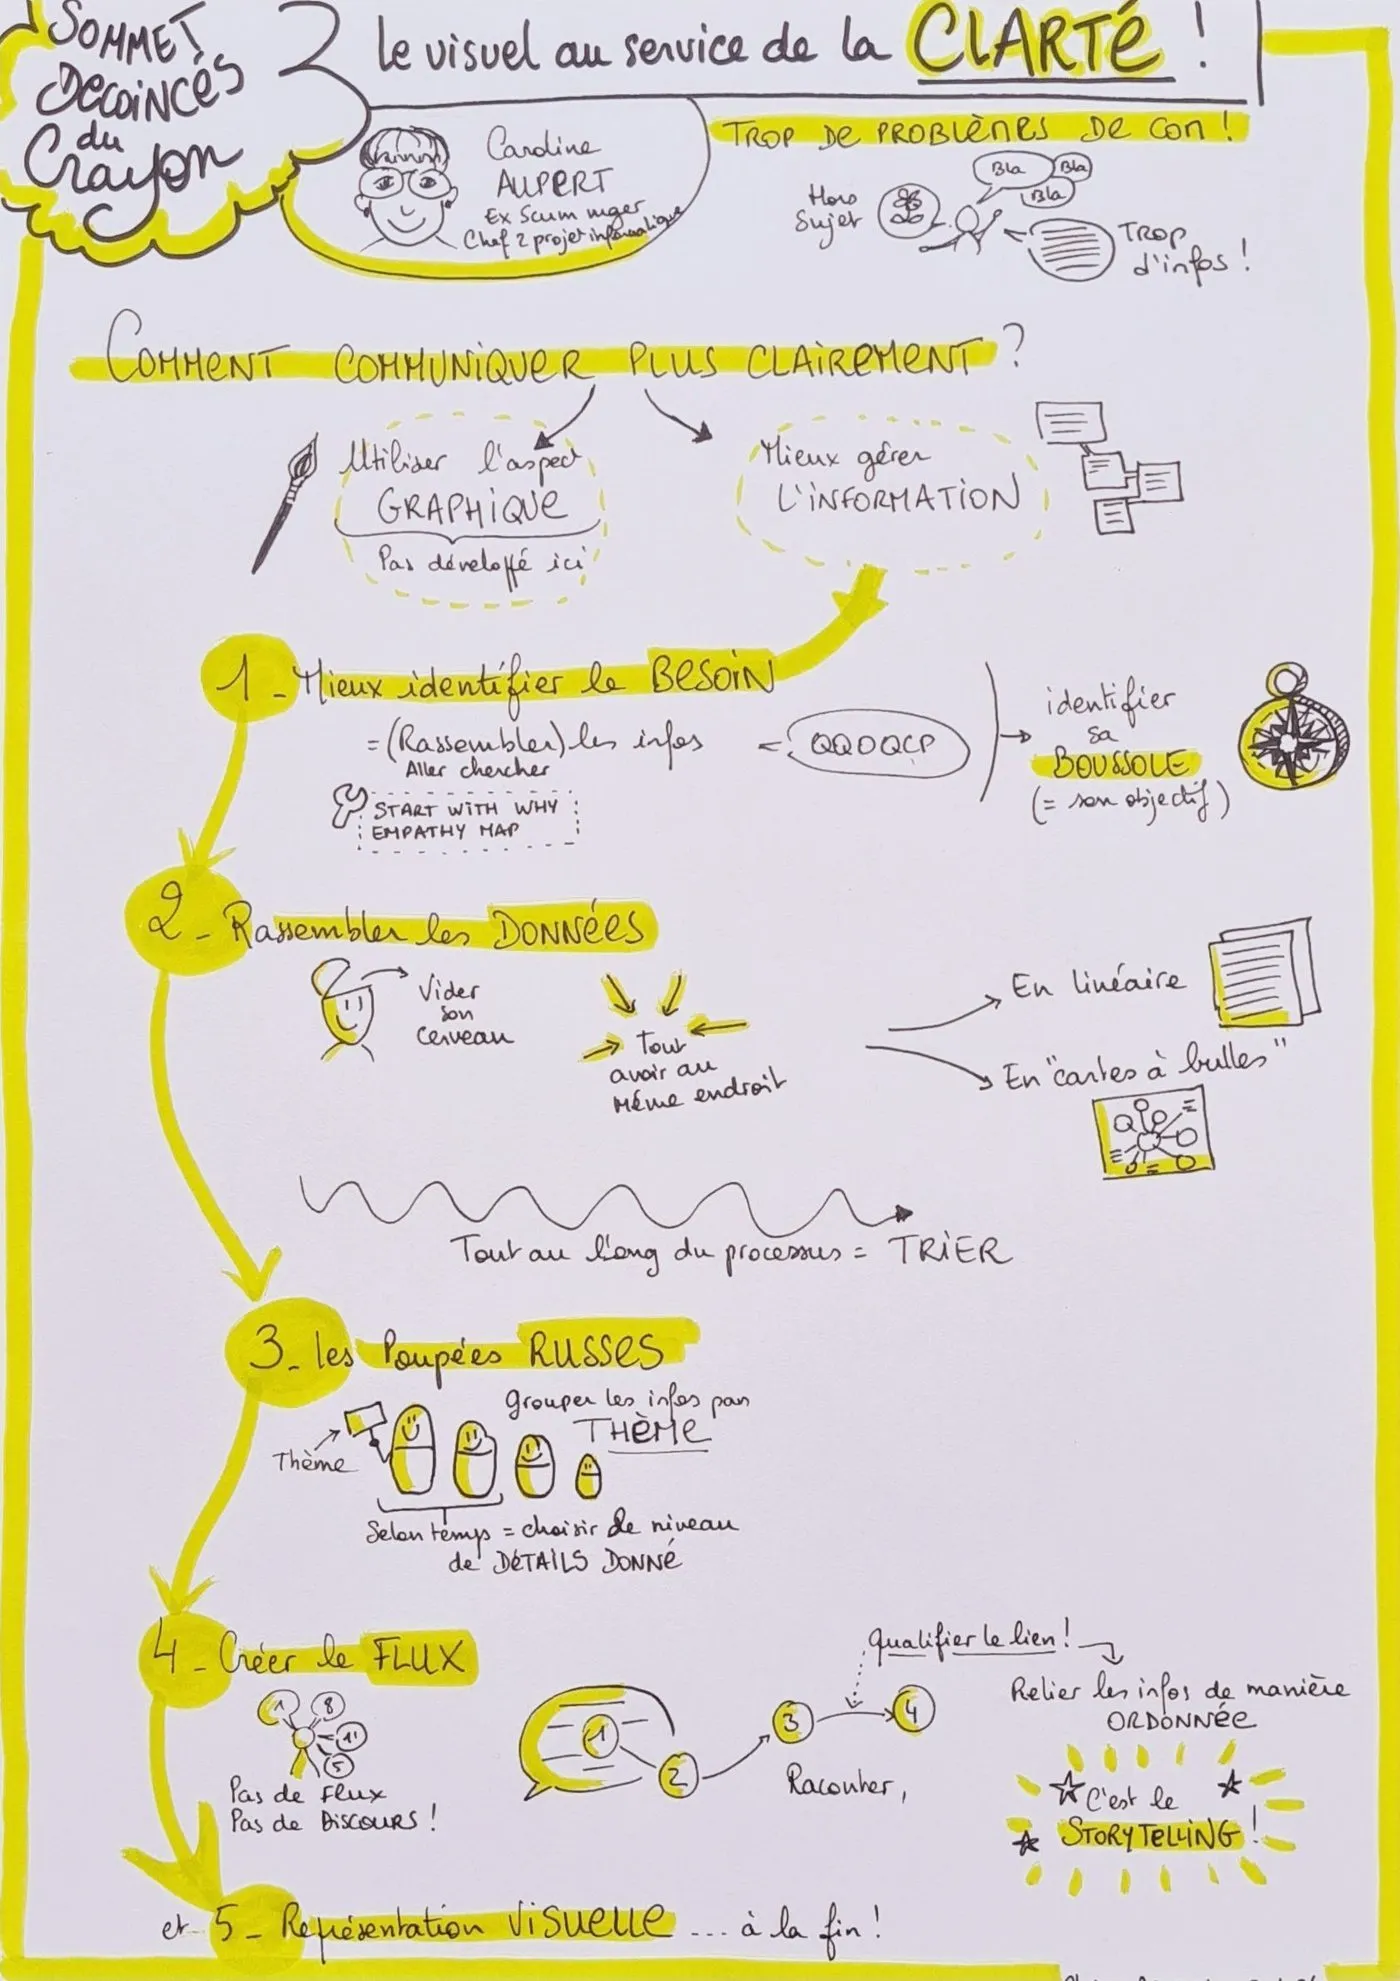 SOMMET
DECOINCÉS
du
Crayon
Le visuel au service de la CLARTÉ !
Caroline
AUPERT
Ex Scum mger
Chef 2 projet informatique
TROP DE PROBLÈMES DE COM !
Hors
Sujet
Bla
Bla
Bla
TROP
d'infos !
COMMENT COMMUNIQUER PLUS CLAIREMENT ?
Utiliser l'aspect
GRAPHIQUE
Pas développé ici
Mieux gérer
L'INFORMATION
1 - Mieux identifier le BESOIN
= (Rassembler) les infos
Aller chercher
START WITH WHY
EMPATHY MAP
QQOQCP
identifier
sa
BOUSSOLE
(= son objectif)
2 - Rassembler les DONNÉES
Vider
son
cerveau
Tout
avoir au
Même endroit
En linéaire
En "cartes à bulles"
Tout au long du processus = TRIER
3 - les Poupées RUSSES
grouper les infos par
THÈME
Thème
Selon temps = choisir le niveau
de DÉTAILS DONNÉ
4 - Créer le FLUX
1
8
11
5
Pas de flux
Pas de DISCOURS !
1
2
3
4
Raconter,
Qualifier le lien !
Relier les infos de manière
ORDONNÉE
C'est le
STORYTELLING !
et 5 - Représentation VISUELLE ... à la fin !